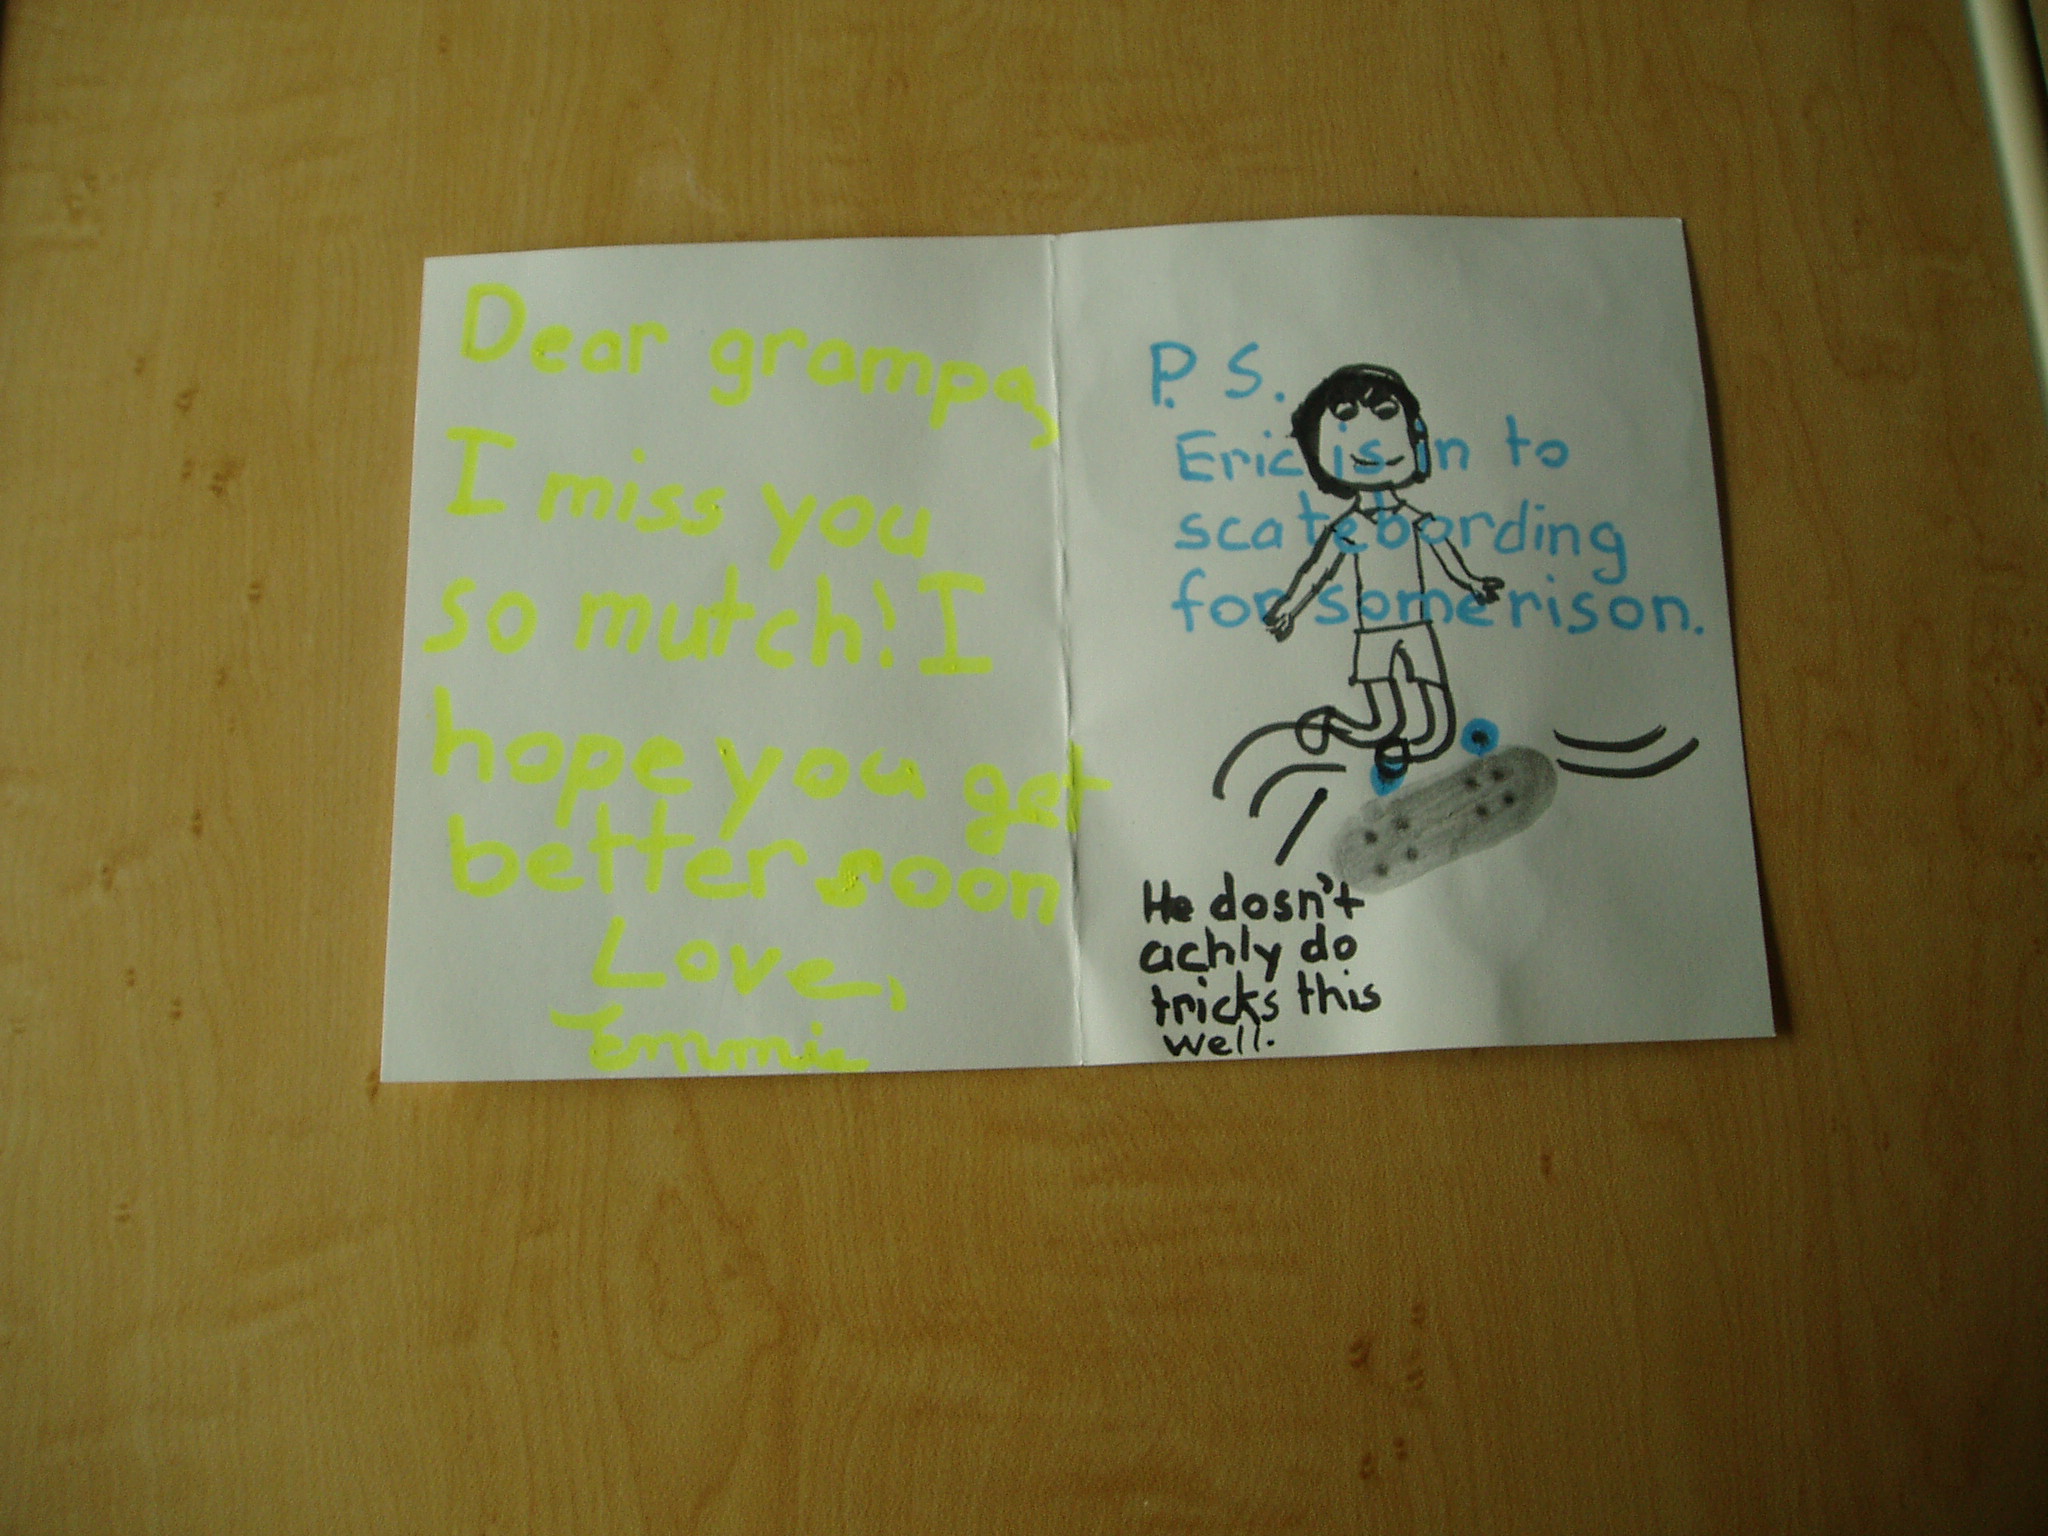 Dear grampa,
I miss you
so mutch! I
hope you get
better soon
Love,
Emmie
P.S.
Eric is in to
scatebording
for some rison.
He dosn't
achly do
tricks this
well.